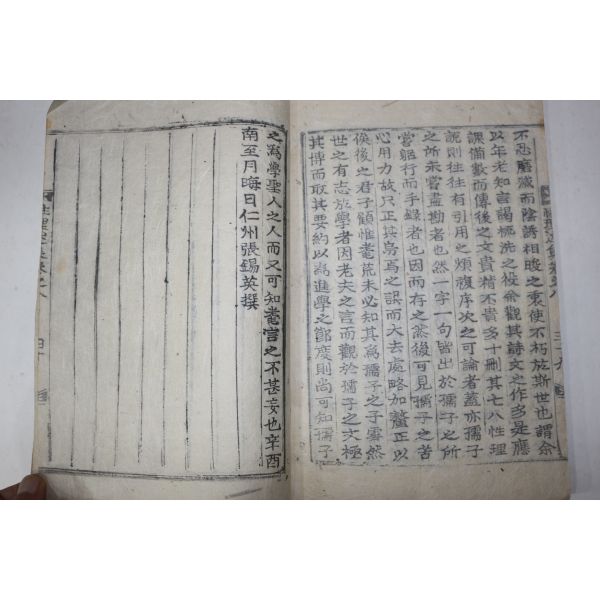 不忍磨滅而陰誘相晙之衷使不朽於斯世也謂余
以年老知言謁梳洗之役余觀其詩文之作多是應
課備數而傳後之文貴精不貴多十刪其七八性理
說則往往有引用之煩複序次之可論者蓋亦孺子
之所未嘗盖勘者也然一字一句皆出於孺子之所
嘗躬行而手錄者也因而存之然後可見孺子之苦
心用力故只正其烏焉之誤而大去處略加釐正以
俟後之君子顧惟耄荒未必知其爲孺子之子雲然
世之有志於學者因老夫之言而觀於孺子之文極
其博而取其要約以爲進學之節度則尚可知孺子
之爲學聖人之人而又可知耄言之不甚妄也辛酉
南至月晦日仁州張錫英撰